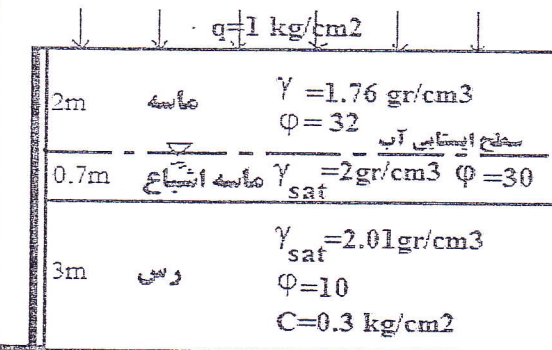 q=1 kg/cm2
2m ماسه γ =1.76 gr/cm3
φ= 32
سطح ایستابی آب
0.7m ماسه اشباع γsat=2gr/cm3 φ =30
γsat=2.01gr/cm3
3m رس φ=10
C=0.3 kg/cm2